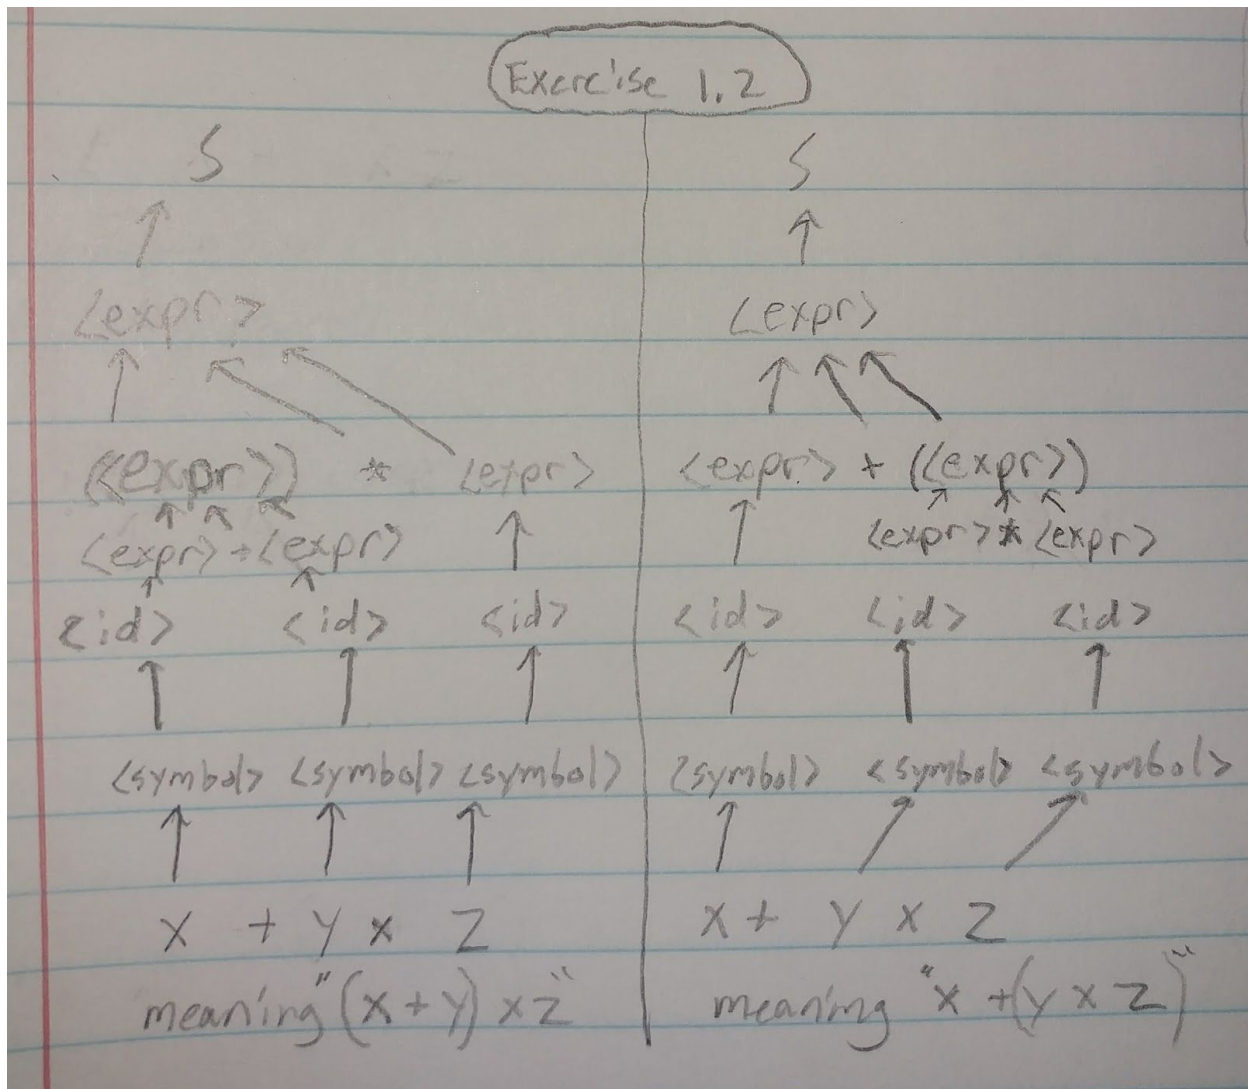 Exercise 1.2
S
<expr>
(<expr>) * <expr>
<expr> + <expr>
<id> <id> <id>
<symbol> <symbol> <symbol>
x + y x z
meaning "(x + y) x z"
S
<expr>
<expr> + (<expr>)
<expr> * <expr>
<id> <id> <id>
<symbol> <symbol> <symbol>
x + y x z
meaning "x + (y x z)"